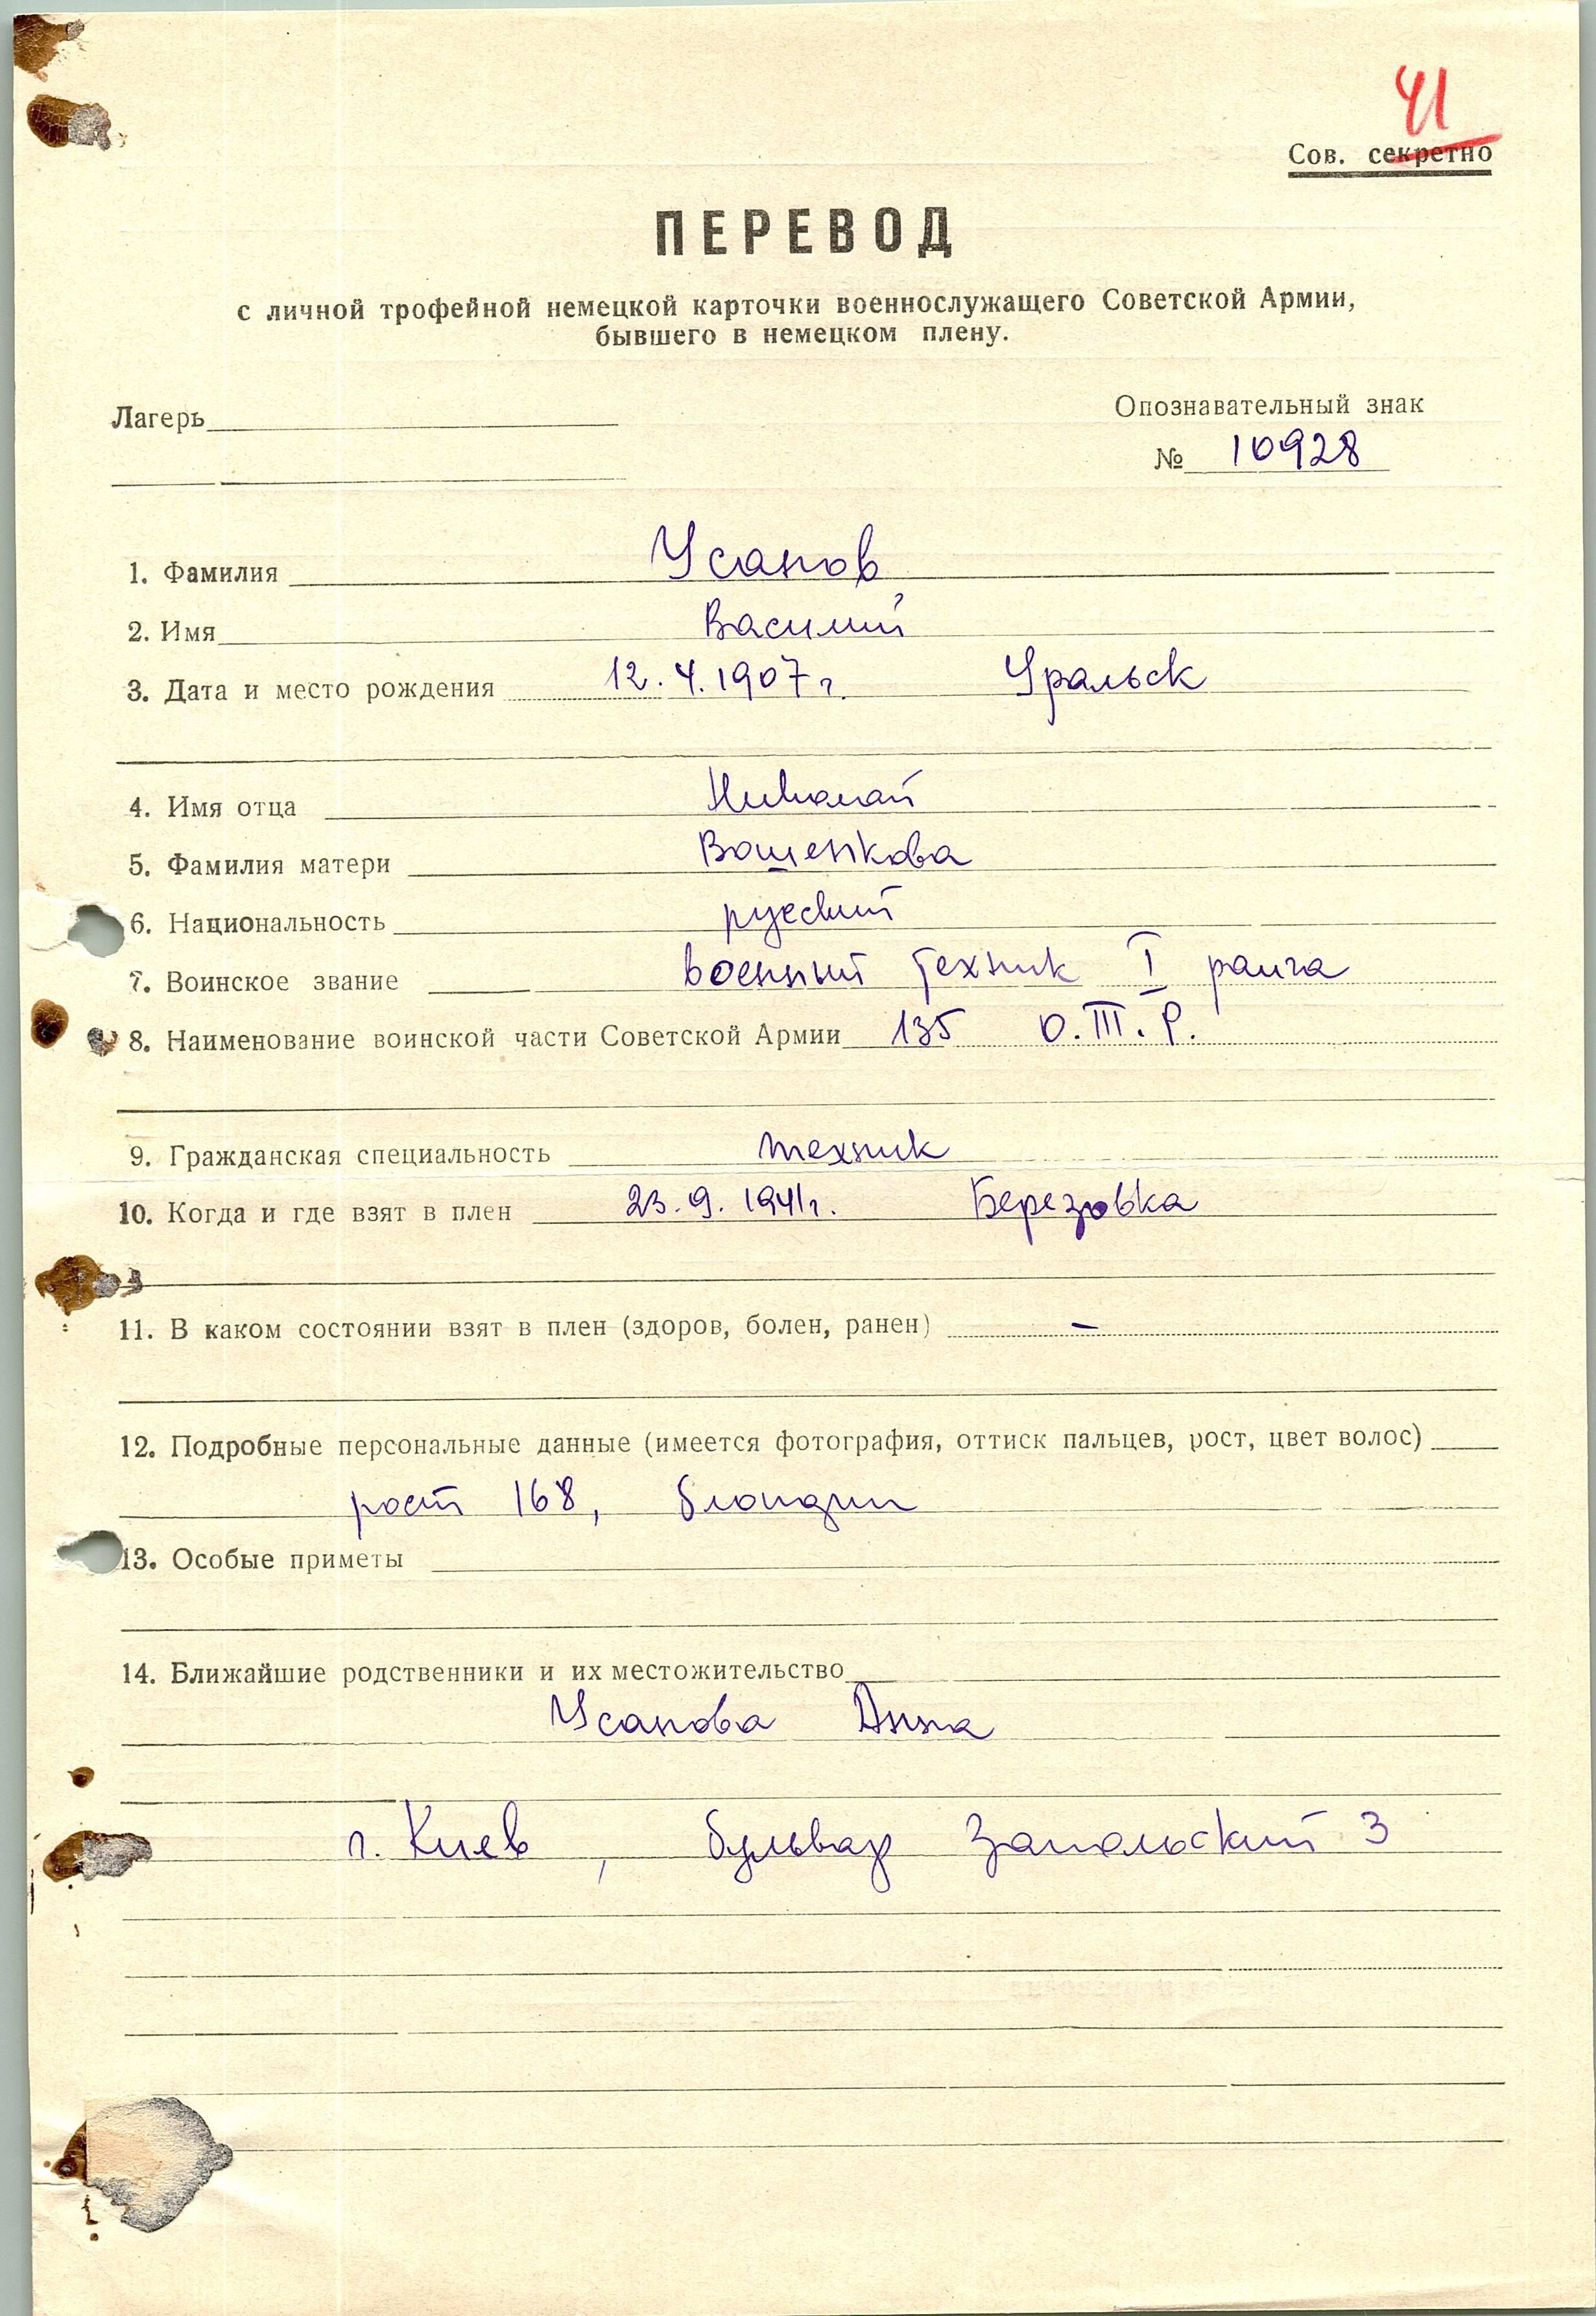 41
Сов. секретно
ПЕРЕВОД
с личной трофейной немецкой карточки военнослужащего Советской Армии,
бывшего в немецком плену.
Лагерь
Опознавательный знак
№ 10928
1. Фамилия Усанов
2. Имя Василий
3. Дата и место рождения 12.4.1907 г. Уральск
4. Имя отца Николай
5. Фамилия матери Вашенкова
6. Национальность русский
7. Воинское звание военный техник I ранга
8. Наименование воинской части Советской Армии 135 О.Т.Р.
9. Гражданская специальность техник
10. Когда и где взят в плен 23.9.1941 г. Березовка
11. В каком состоянии взят в плен (здоров, болен, ранен) –
12. Подробные персональные данные (имеется фотография, оттиск пальцев, рост, цвет волос)
рост 168, блондин
13. Особые приметы
14. Ближайшие родственники и их местожительство
Усанова Анна
г. Киев, бульвар Запольский 3